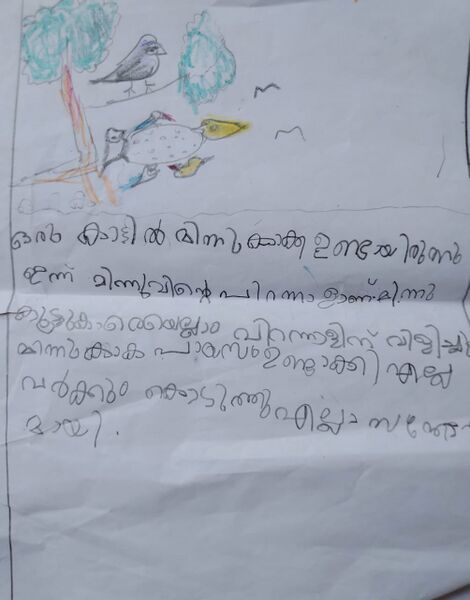 ഒരു കാട്ടിൽ മിന്നു കാക്ക ഉണ്ടായിരുന്നു
ഇന്ന് മിന്നുവിന്റെ പിറന്നാളാണ്. മിന്നു
കൂട്ടുകാരെയെല്ലാം പിറന്നാളിന് വിളിച്ചു
മിന്നുകാക്ക പായസം ഉണ്ടാക്കി എല്ലാ
വർക്കും കൊടുത്തു എല്ലാ സന്തോ
മായി.